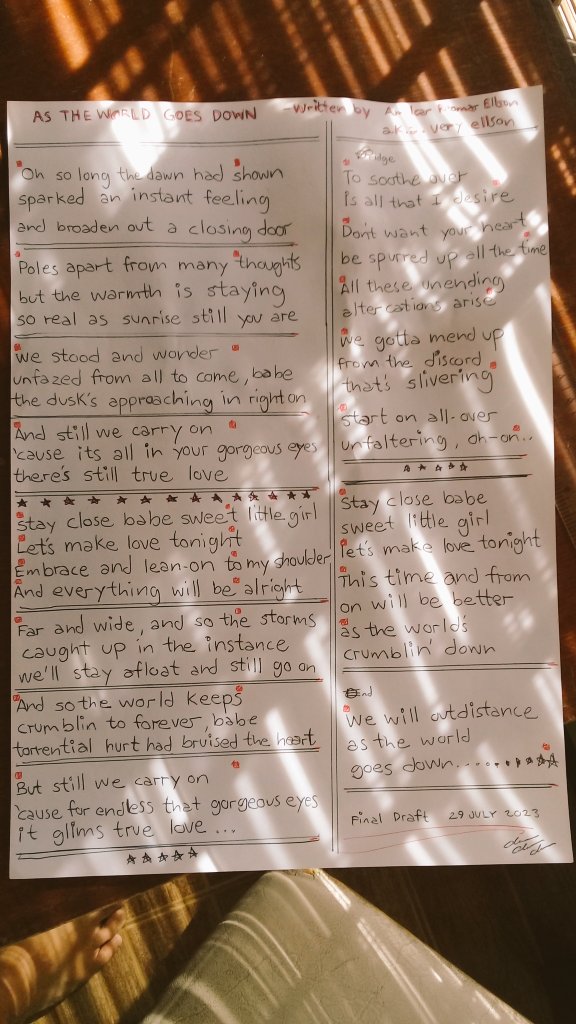 AS THE WORLD GOES DOWN - Written by Elbson
a.k.a. very ellson
Oh so long the dawn had shown
sparked an instant feeling
and broaden out a closing door
Poles apart from many thoughts
but the warmth is staying
so real as sunrise still you are
We stood and wonder
unfazed from all to come, babe
the dusk's approaching in right on
And still we carry on
'cause its all in your gorgeous eyes
there's still true love
Stay close babe sweet little girl
Let's make love tonight
Embrace and lean-on to my shoulder
And everything will be alright
Far and wide, and so the storms
caught up in the instance
we'll stay afloat and still go on
And so the world keeps
crumblin to forever, babe
torrential hurt had bruised the heart
But still we carry on
'cause for endless that gorgeous eyes
it glims true love ...
Bridge
To soothe over
is all that I desire
Don't want your heart
be spurred up all the time
All these unending
altercations arise
We gotta mend up
from the discord
that's slivering
start on all-over
unfaltering, oh-on..
Stay close babe
sweet little girl
let's make love tonight
This time and from
on will be better
as the world's
crumblin' down
End
We will outdistance
as the world
goes down........
Final Draft 29 JULY 2023